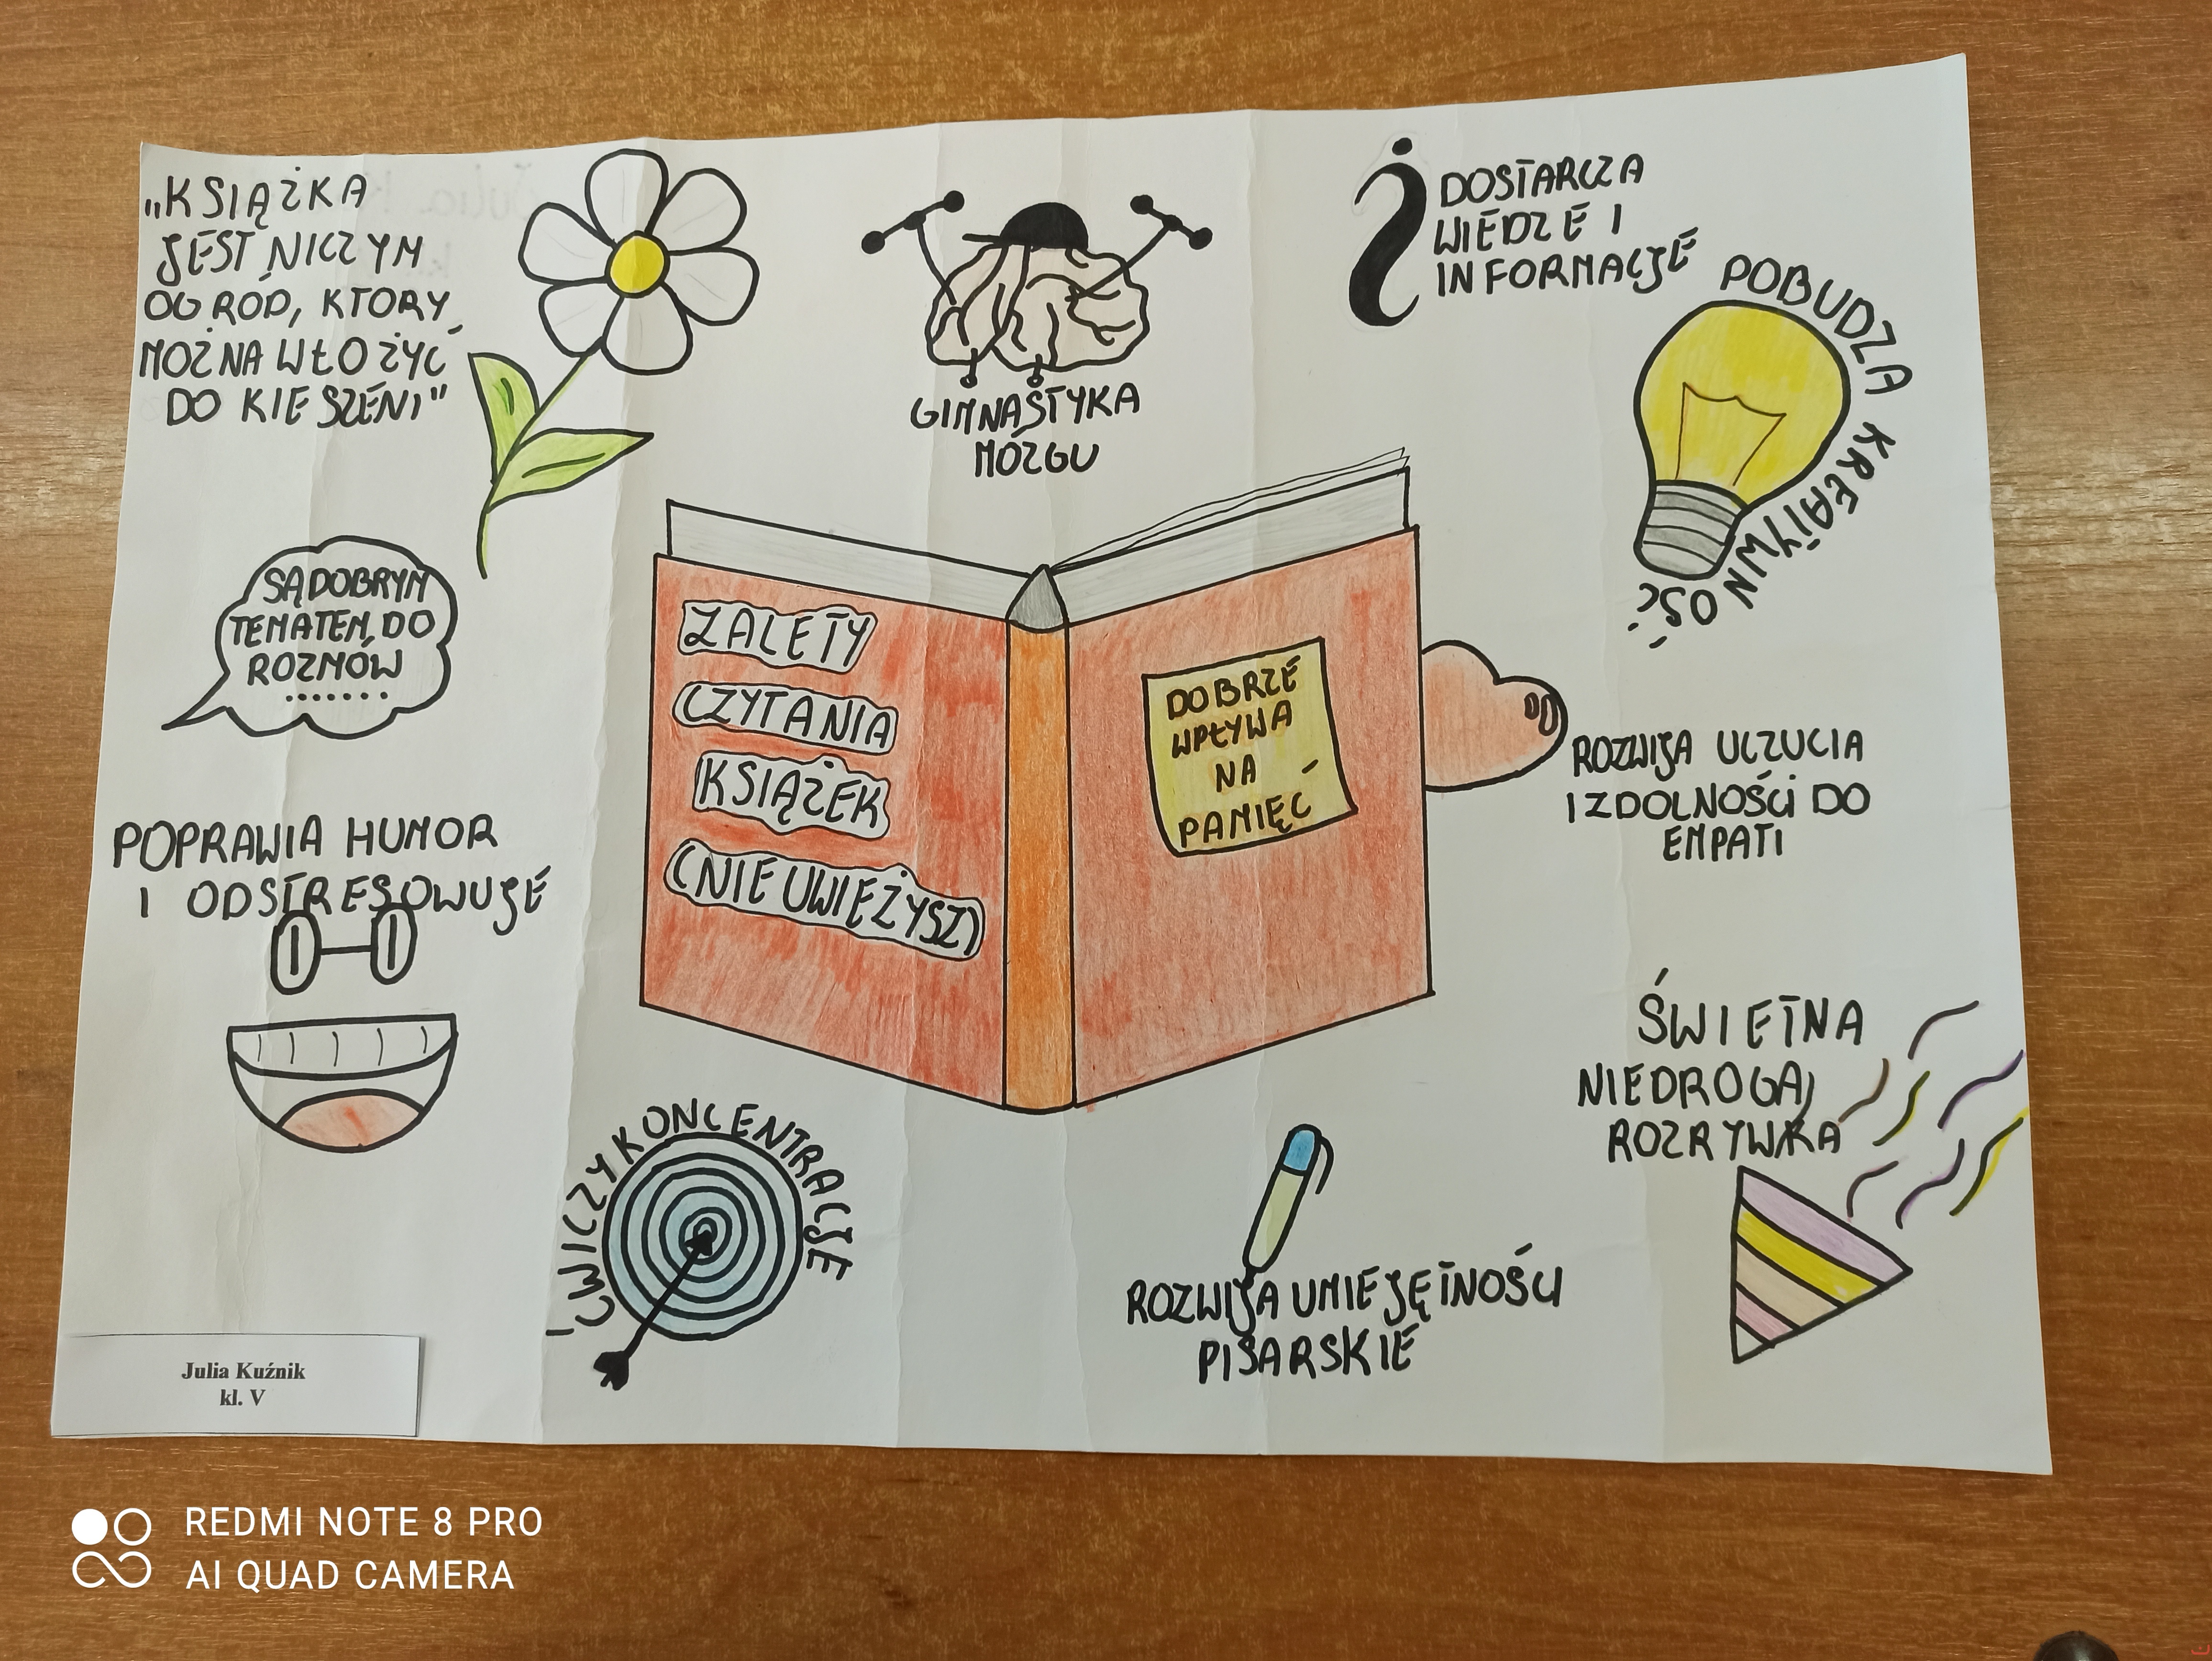 „KSIĄŻKA
JEST NICZYM
OGRÓD, KTORY
MOŻNA WŁOŻYĆ
DO KIESZENI"
GIMNASTYKA
MÓZGU
DOSTARCZA
WIEDZE I
INFORMACJE
POBUDZA KREATYWNOŚĆ
SĄ DOBRYM
TEMATEM DO
ROZMÓW
.......
ZALETY
CZYTANIA
KSIĄŻEK
(NIE UWIEŻYSZ)
DOBRZE
WPŁYWA
NA
PAMIĘĆ
ROZWIJA UCZUCIA
I ZDOLNOŚCI DO
EMPATI
POPRAWIA HUMOR
I ODSTRESOWUJE
ŚWIETNA
NIEDROGA,
ROZRYWKA
ĆWICZY KONCENTRACJE
ROZWIJA UMIEJĘTNOŚCI
PISARSKIE
Julia Kuźnik
kl. V
REDMI NOTE 8 PRO
AI QUAD CAMERA